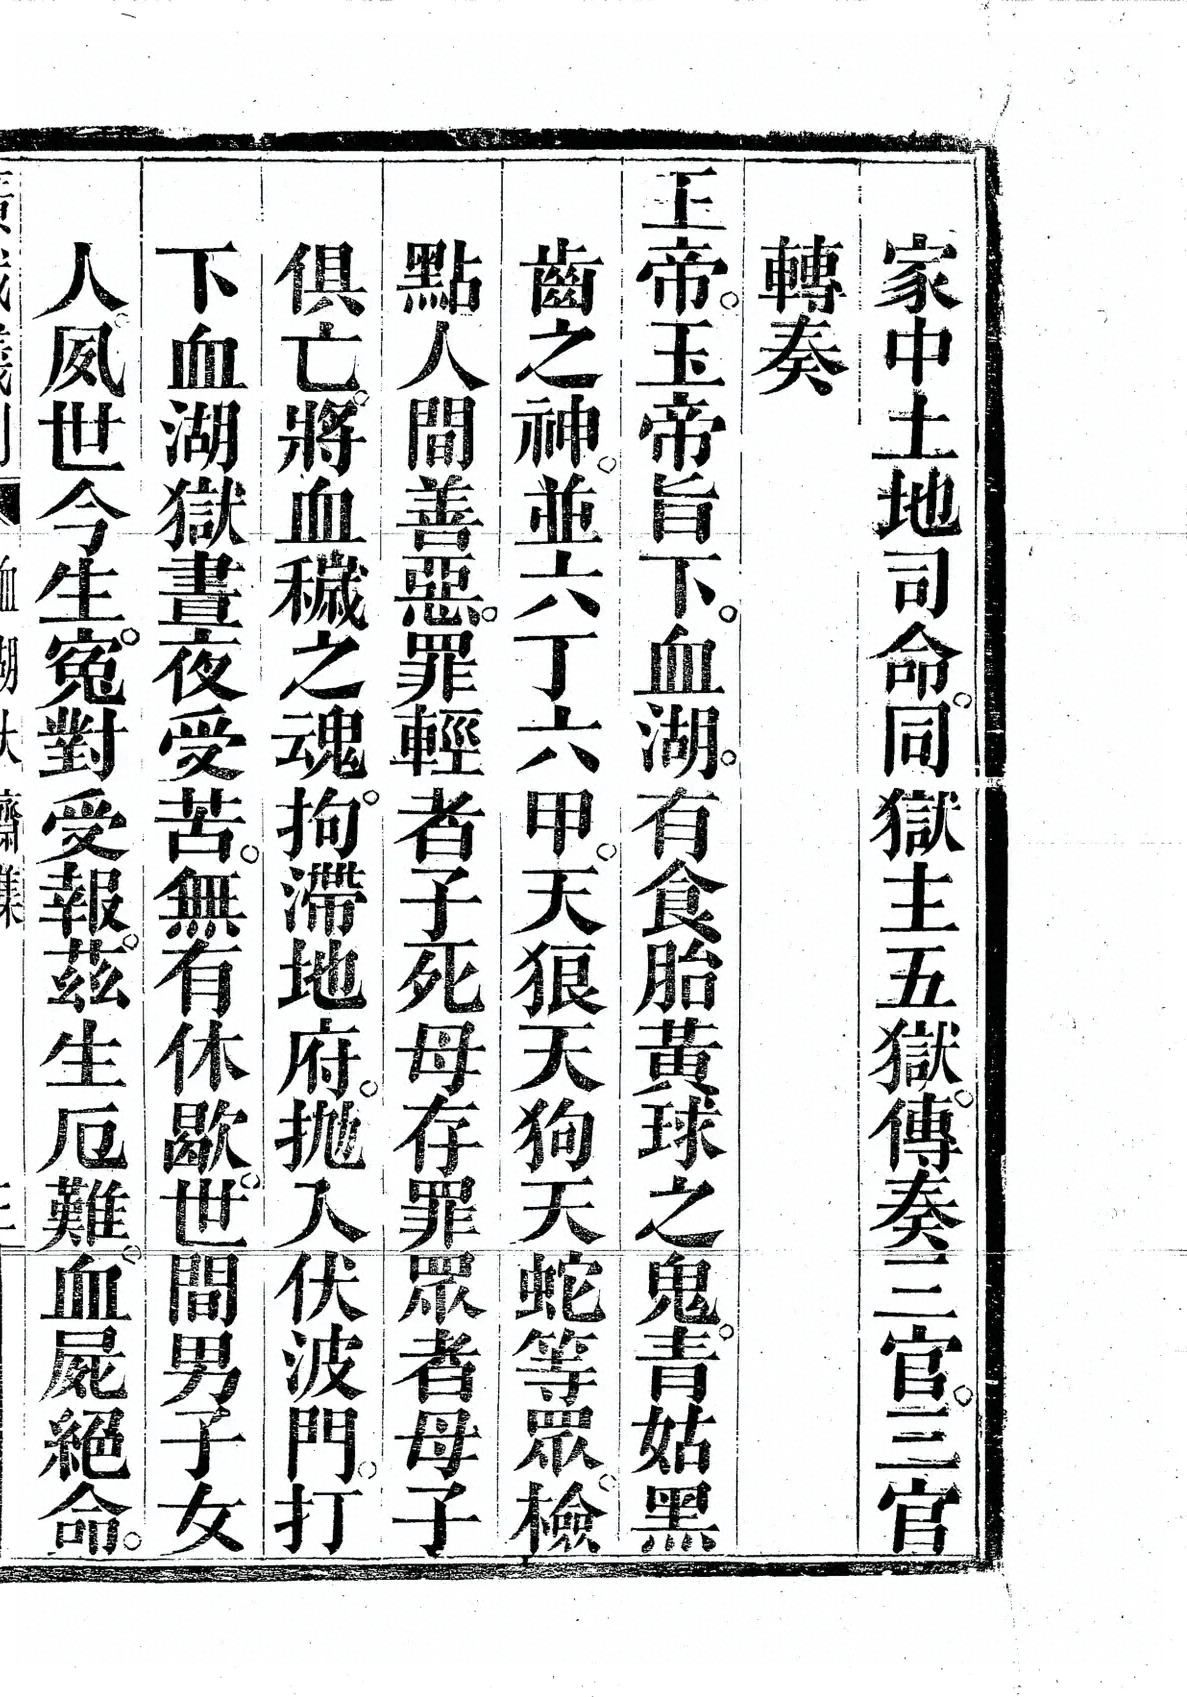 家中土地司命。同獄主五獄。傳奏三官。三官
轉奏
玉帝。玉帝旨下。血湖。有食胎黃球之鬼。青姑黑
齒之神。並六丁六甲。天狼天狗天蛇等眾。檢
點人間善惡。罪輕者子死母存罪眾者母子
俱亡。將血穢之魂。拘滯地府。拋入伏波門。打
下血湖獄晝夜受苦。無有休歇。世間男子女
人。夙世今生。寃對受報。茲生厄難。血屍絕命。
血湖大齋集